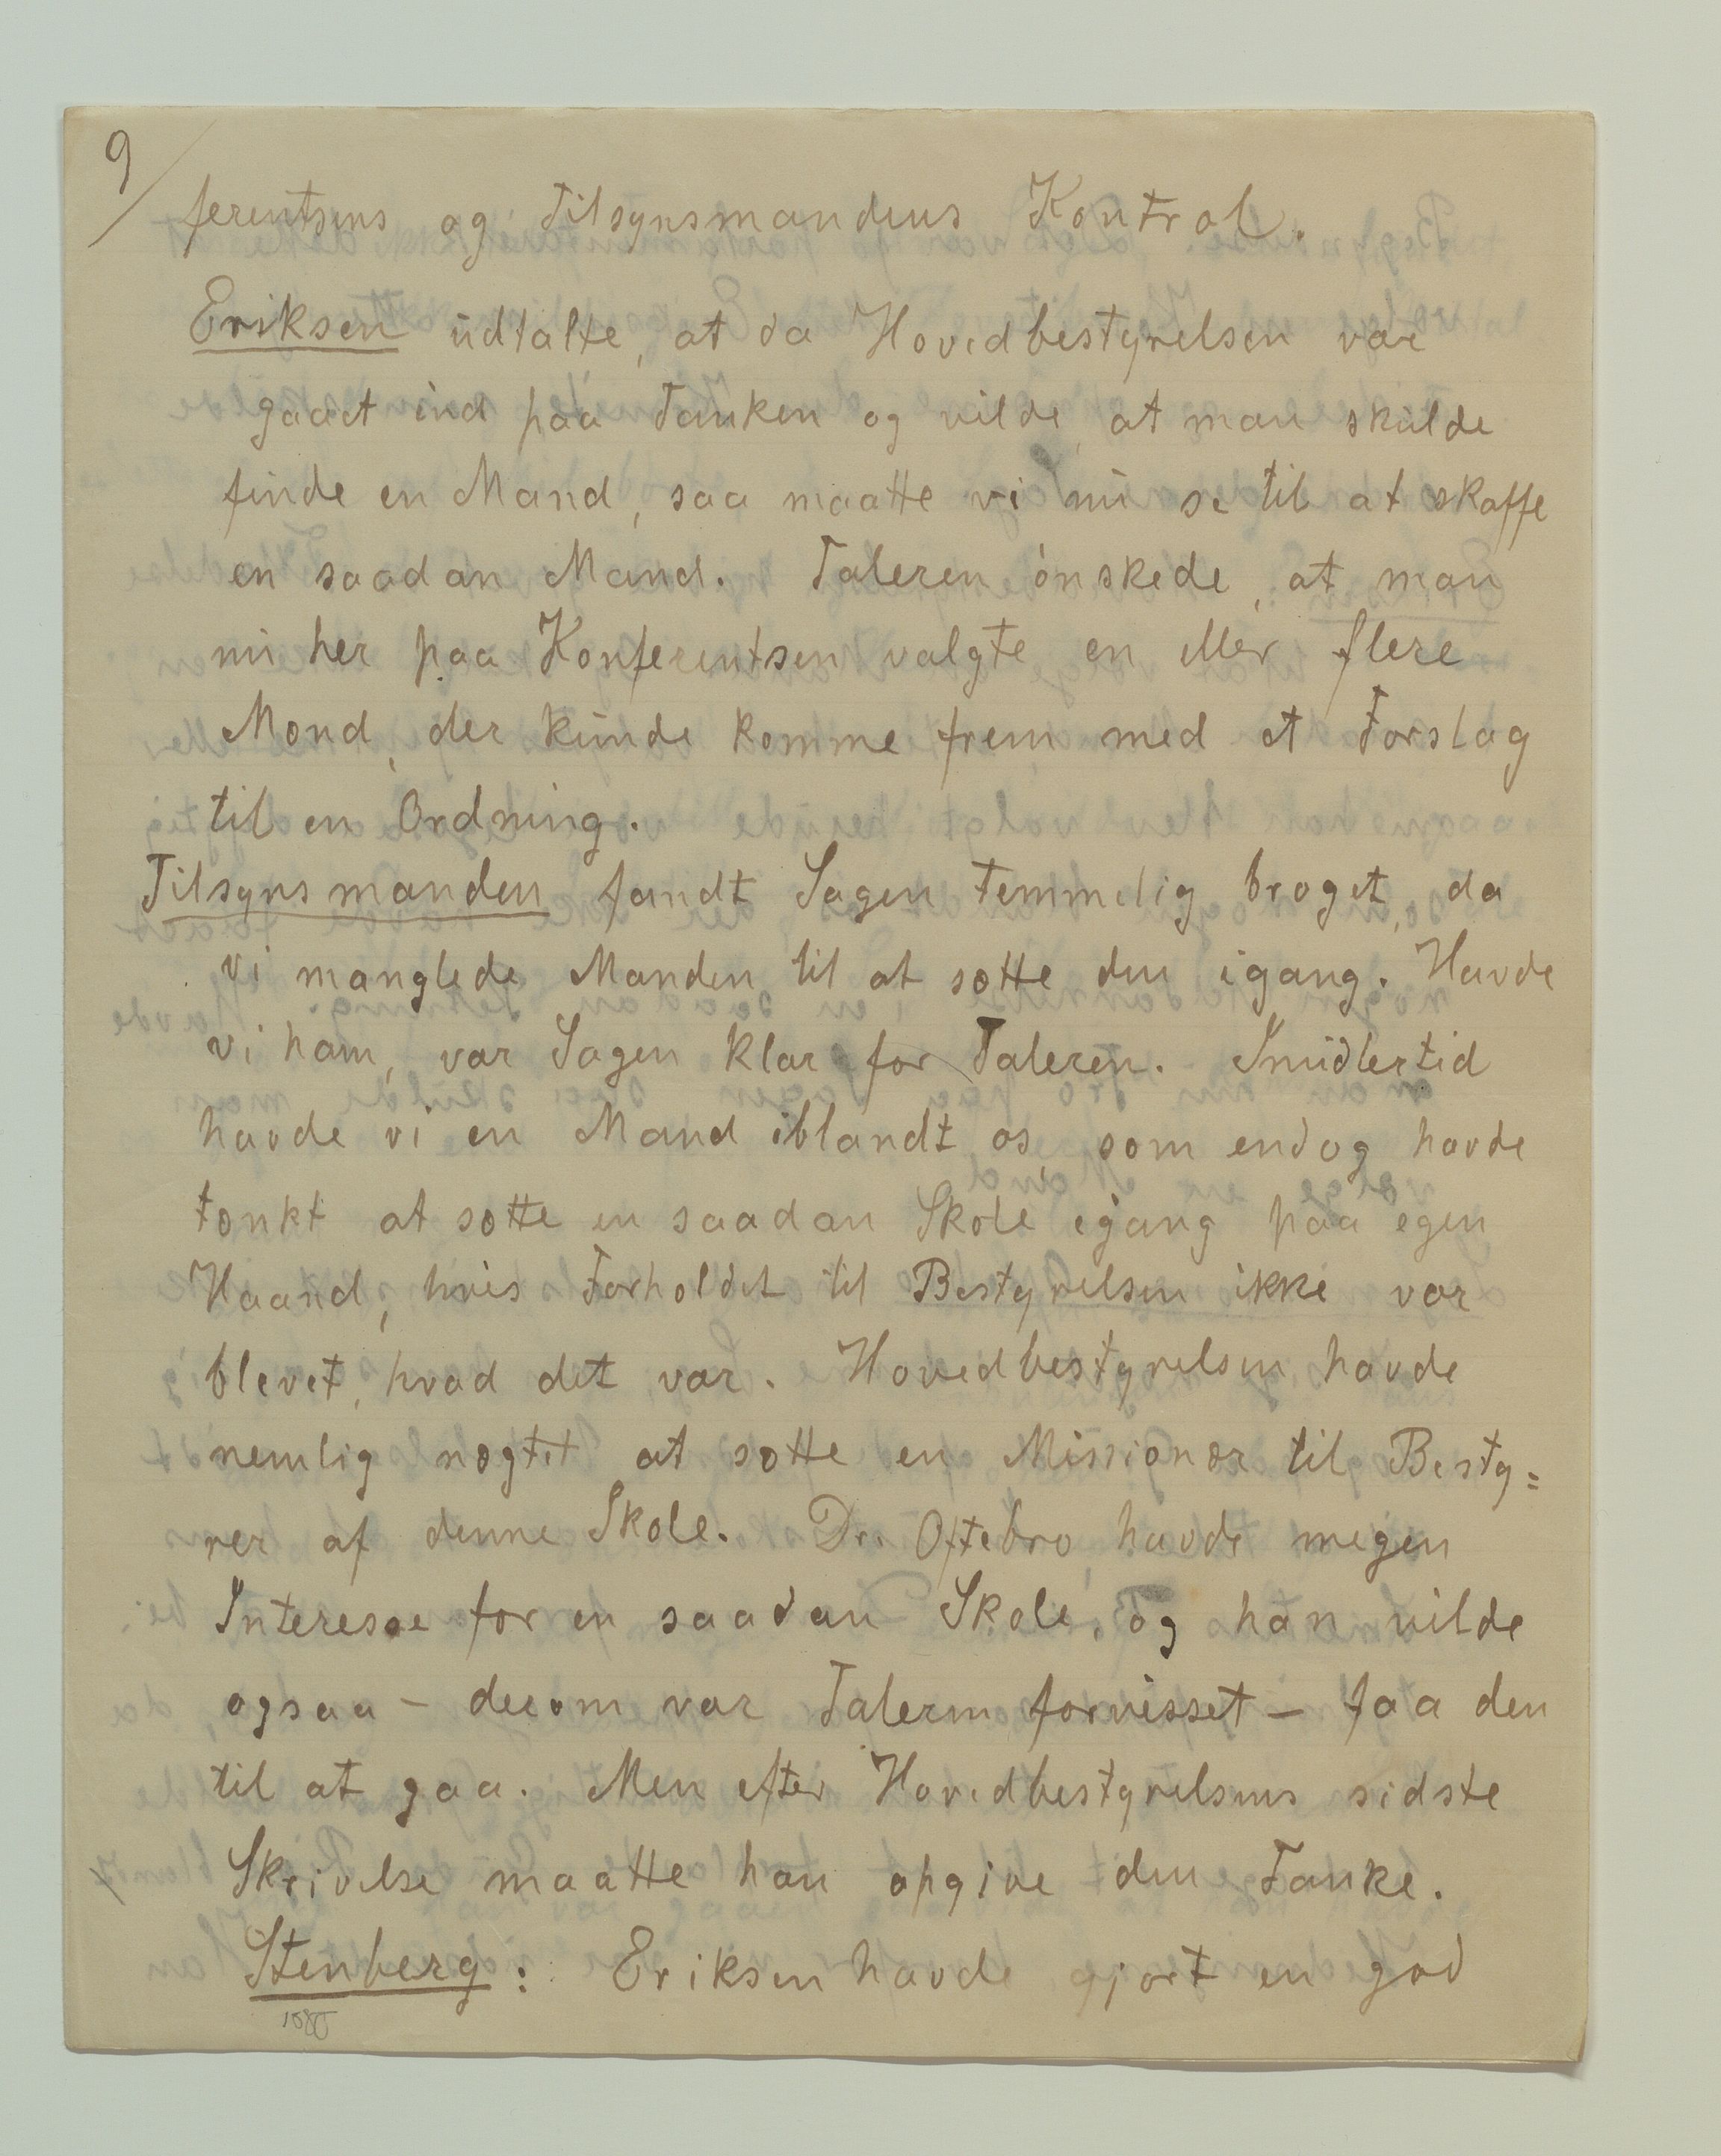 9/
ferentsens og Tilsynsmandens Kontrol.
Eriksen udtalte, at da Hovedbestyrelsen var
gaaet ind paa Tanken og vilde, at man skulde
finde en Mand, saa maatte vi nu se til at skaffe
en saadan Mand. Taleren ønskede, at man
nu her paa Konferentsen valgte en eller flere
Mænd, der kunde komme frem med et Forslag
til en Ordning.
Tilsynsmanden fandt Sagen temmelig broget, da
vi manglede Manden til at sætte den igang. Havde
vi ham, var Sagen klar for Taleren. Imidlertid
havde vi en Mand iblandt os, som endog havde
tænkt at sætte en saadan Skole igang paa egen
Haand, hvis Forholdet til Bestyrelsen ikke var
blevet, hvad det var. Hovedbestyrelsen havde
nemlig nægtet at sætte en Missionær til Besty=
rer af denne Skole. Dr. Oftebro havde megen
Interesse for en saadan Skole, og han vilde
ogsaa – derom var Taleren forvisset – faa den
til at gaa. Men efter Hovedbestyrelsens sidste
Skrivelse maatte han opgive den Tanke.
Stenberg: Eriksen havde gjort en god